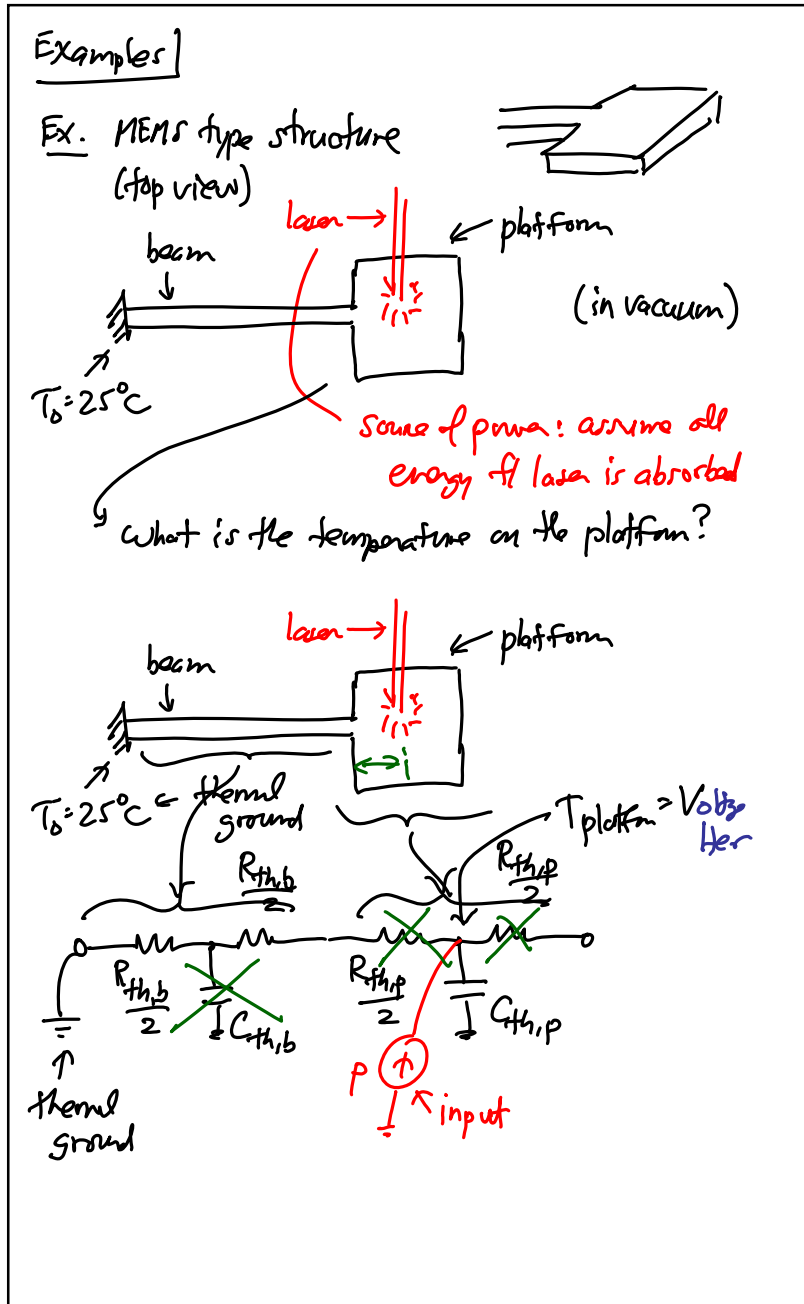 Examples
Ex. MEMS type structure
(top view)
laser →
platform
beam
(in vacuum)
T₀=25°C
source of power: assume all
energy f/ laser is absorbed
what is the temperature on the platform?
laser →
platform
beam
i
T₀=25°C ← thermal
ground
Tplatform = Voltage
Her
Rth,b/2
Rth,p/2
Rth,b/2
Cth,b
Rth,p/2
Cth,p
P
input
thermal
ground